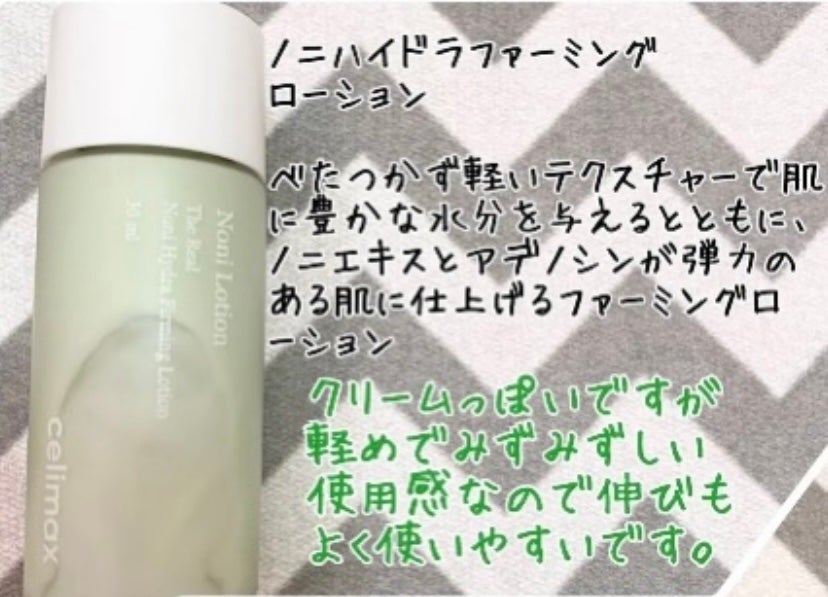 ノニハイドラファーミング
ローション
べたつかず軽いテクスチャーで肌
に豊かな水分を与えるとともに、
ノニエキスとアデノシンが弾力の
ある肌に仕上げるファーミングロ
ーション
クリームっぽいですが
軽めでみずみずしい
使用感なので伸びも
よく使いやすいです。
Noni Lotion
The Real
Noni Hydra Firming Lotion
30 ml
celimax